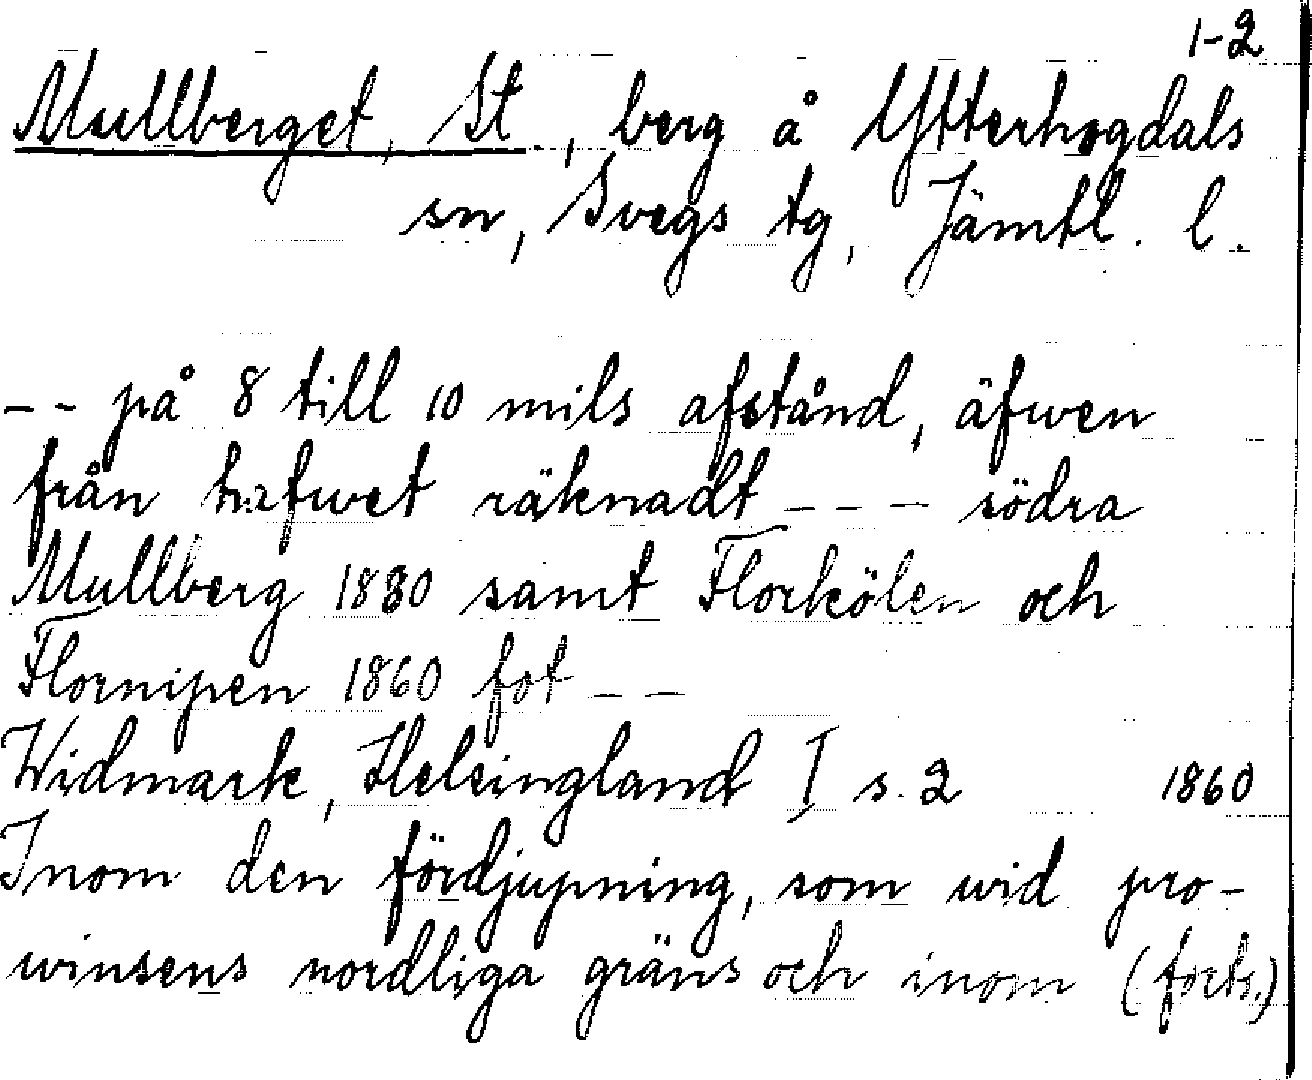 1-2
Mullberget, St., berg å Ytterhogdals
sn, Svegs tg, Jämtl. l.
-- på 8 till 10 mils afstånd, äfwen
från hafwet räknadt --- södra
Mullberg 1880 samt Florkölen och
Flornipen 1860 fot --
Widmark, Helsingland I s. 2 1860
Inom den fördjupning, som wid pro-
winsens nordliga gräns och inom (forts.)